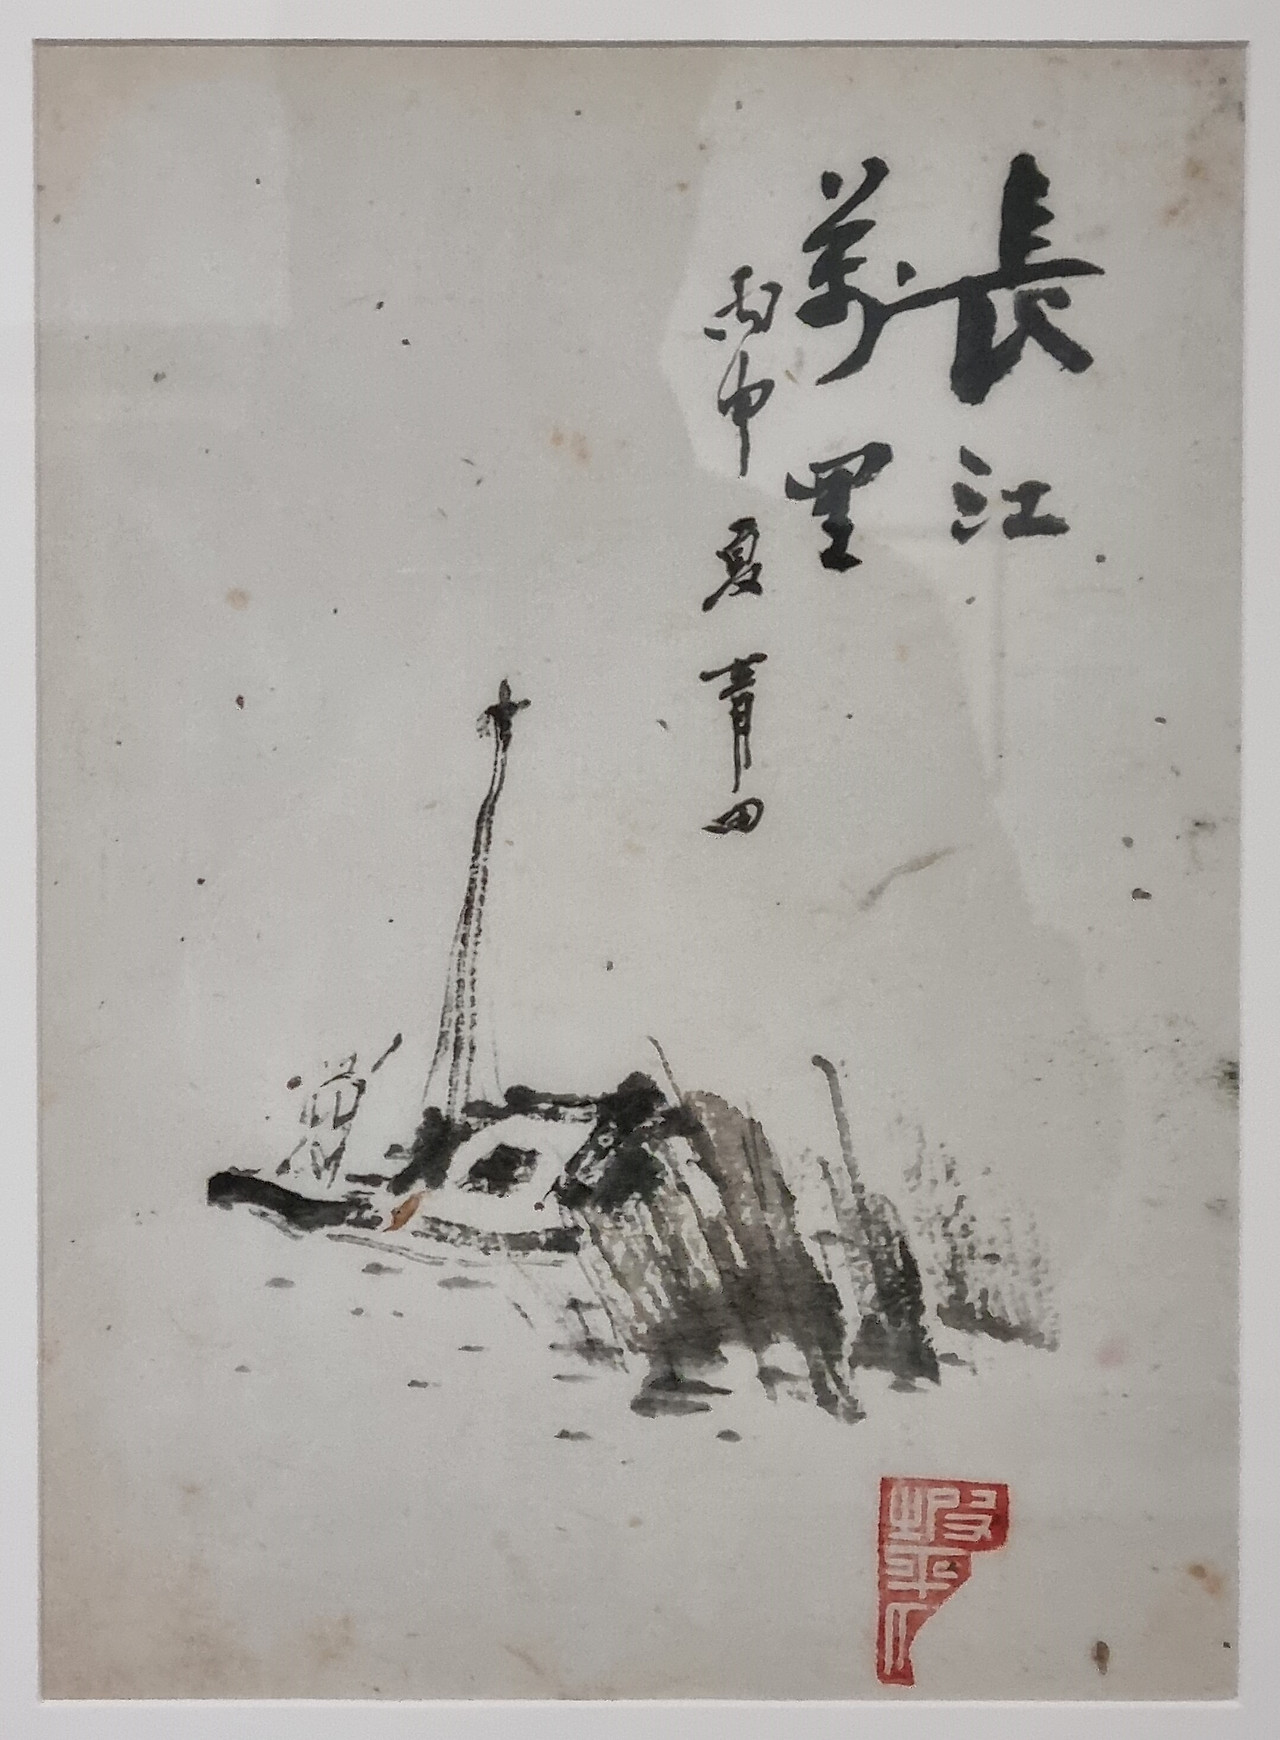 長江
萬里
丙申夏青田